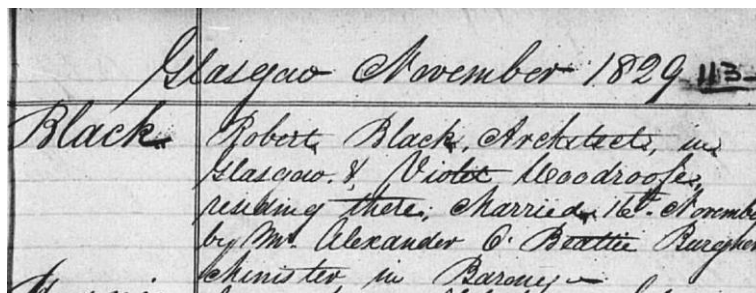 Glasgow November 1829 113
Black Robert Black, Architect, in
Glasgow, & Violet Woodroofe,
residing there, Married 16th November
by Mr. Alexander O. Beattie Burgher
Minister in Barony